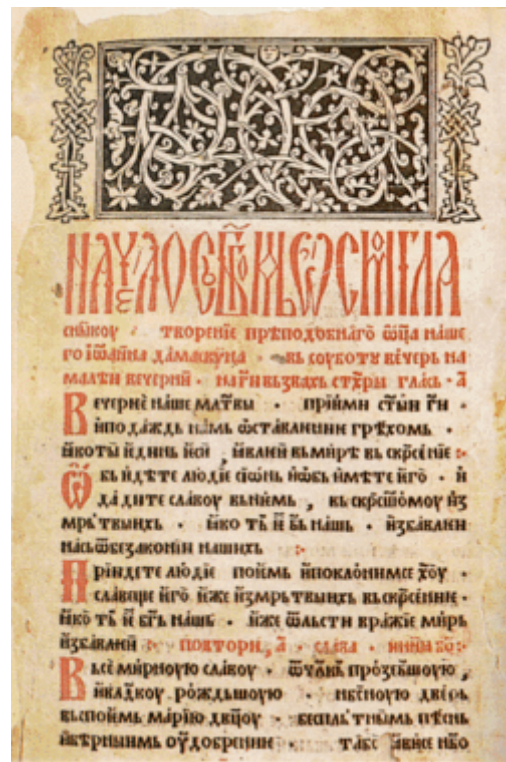 НАЧЕЛО СЬ БГОМЬ ѠСМОГЛА
сникоу · творенїе прѣподобнаго ѡца наше
го їѡанна дамаскуна · вь соуботу вечерь на
малѣи вечерни · на ги вьзвахь стхры глась · а
Вечерне наше млтвы · прїими стыи ги ·
и подаждь намь ѡставлиние грѣхомь ·
ꙗко ты ѥдинь ѥси , ꙗвлеи вь мирѣ вьскрсенїе
Ѡбьидѣте людїе сїѡнь и ѡбьимѣте ѥго · и
дадите славоу вь нѥмь , вьскрсшомоу из
мрьтвыихь · ꙗко ть ѥ бь нашь · избавлеи
нась ѿ безаконїи нашихь
Прїидете людїе поимь и поклонимсе хоу ·
славеще ѥго ѥже из мрьтвыихь вьскрсенние ·
ꙗко ть ѥ бгь нашь · иже ѿ льсти вражїе мирь
избавлеи повтори, а · слава · нинꙗ бо
Вьсемирноую славоу · ѿ члвкь прозебшоую ,
и владкоу рождьшоую нбсноую дверь
вьспоимь марїю двцоу · беспльтныимь пѣснь
и вѣрныимь оудобрении · таѕе ꙗвисе нбо